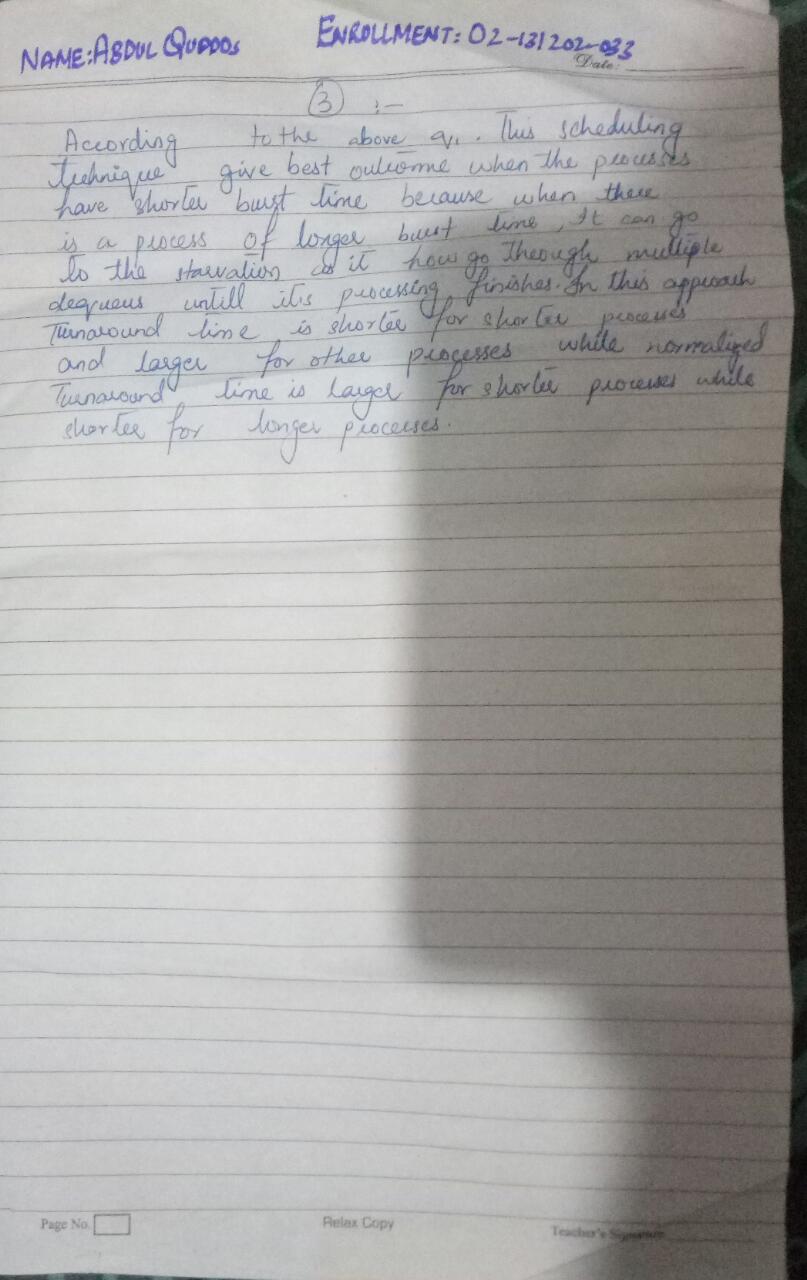 NAME: ABDUL QUDDOS ENROLLMENT: 02-131202-033
Date:
3 :-
According to the above q. This scheduling
technique give best outcome when the processes
have shorter burst time because when there
is a process of longer burst time, It can go
to the starvation as it how go through multiple
dequeues untill its processing finishes. In this approach
Turnaround time is shorter for shorter processes
and larger for other processes while normalized
Turnaround time is larger for shorter processes while
shorter for longer processes.
Page No. Relax Copy Teacher's Signature